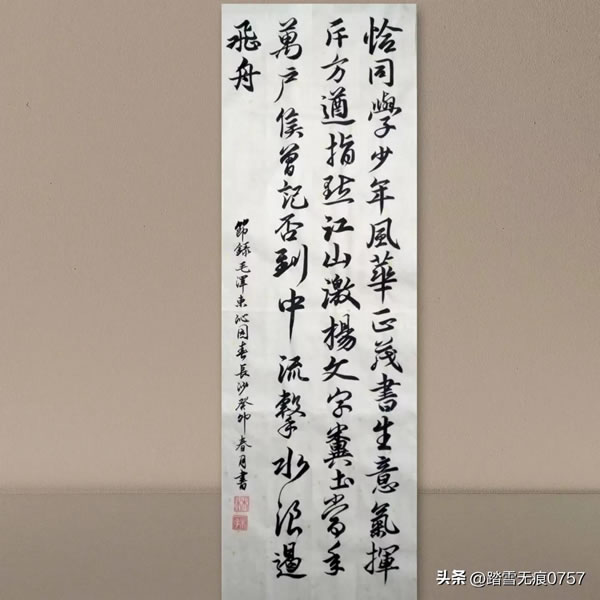 恰同學少年風華正茂書生意氣揮
斥方遒指點江山激揚文字糞土當年
萬戶侯曾記否到中流擊水浪遏
飛舟
節錄毛澤東沁园春長沙癸卯春月書
头条 @踏雪无痕0757